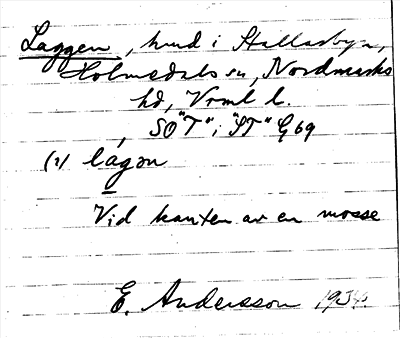 Laggen, hmd i Stallarbyn,
Holmedals sn, Nordmarks
hd, Vrml l.
SO "T" i "ST" G 69
(1) lágən
Vid kanten av en mosse
E. Andersson 193